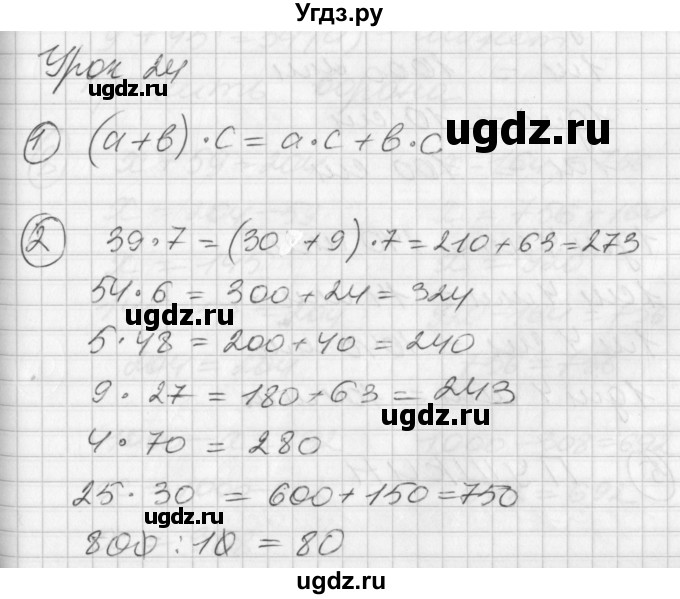 Угдз.ру
Урок 24
ugdz.ru
ugdz.ru
1 (а+в)·с=а·с+в·с
2 39·7=(30+9)·7=210+63=273
54·6=300+24=324
ugdz.ru
ugdz.ru
5·48=200+40=240
9·27=180+63=243
ugdz.ru
4·70=280
25·30=600+150=750
ugdz.ru
800:10=80
ugdz.ru